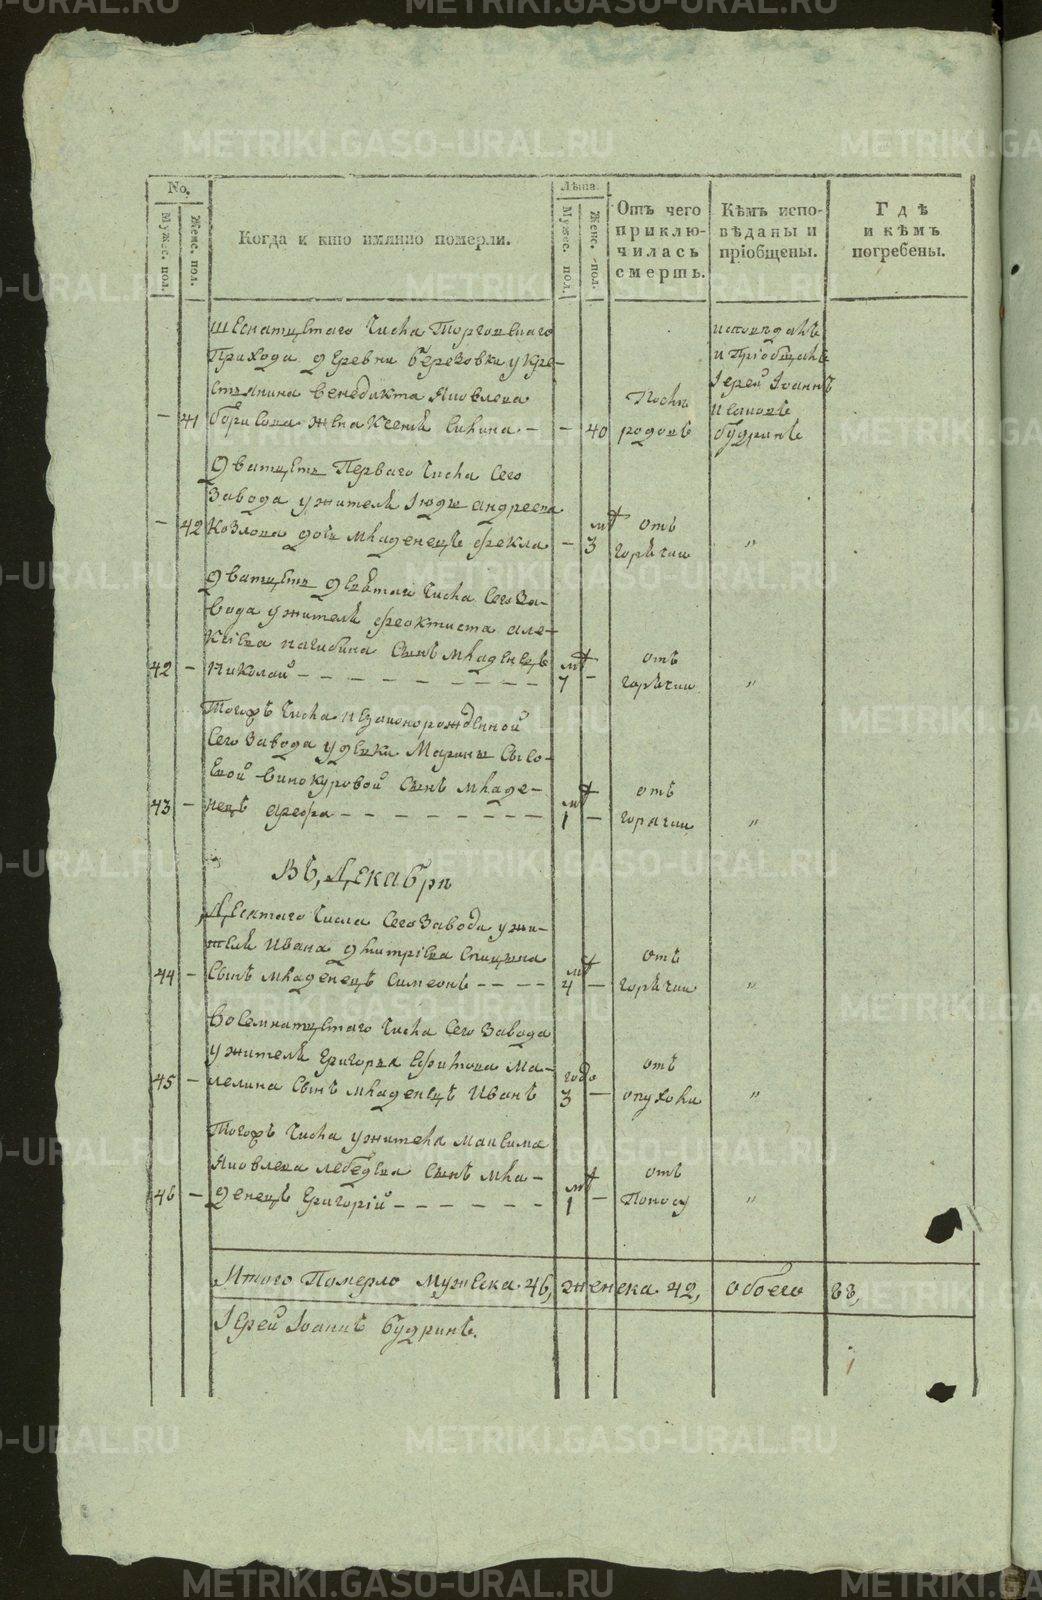 METRIKI.GASO-URAL.RU
No.
Мужес. пол.
Женс. пол.
Когда и кто имянно померли.
Лѣта.
Мужес. пол.
Женс. пол.
Отъ чего приклю-чилась смерть.
Кѣмъ испо-вѣданы и пріобщены.
Гдѣ и кѣмъ погребены.
шеснатцетаго числа Торговскаго
Прихода деревни березовки у кре-
стьянина венедикта Яковлева
— 41 борисова жена Ксенія — — 40
Послѣ
родовъ
исповѣданъ
и пріобщанъ
Іерей Іоаннъ
будринъ
Дватцеть Перваго числа сего
Завода у жителя андреева
— 42 Козлова дочь младенецъ фекла — 3 мц
отъ
горячки "
дватцеть девятаго числа сего За-
вода у жителя феоктиста але-
ксіева нагибина сынъ младенецъ
42 — Николай — — — — — — — мц 7 —
отъ
горячки "
Тогожъ числа незаконорожденной
сего Завода у девки Марины сысо-
евой винокуровой сынъ младе-
43 — нецъ — — — — — — — мц 1 —
отъ
горячки "
Въ, Декабрѣ
Десятаго числа сего Завода у жи-
теля Ивана дмитріева спицына
44 — сынъ младенецъ симеонъ — — — — мц 4 —
отъ
горячки "
восемнатцетаго числа сего Завода
у жителя григорья Ма-
45 — лелина сынъ младенецъ Иванъ годо 3 —
отъ
опухоли "
Тогожъ числа у жителя максима
Яковлева лебедева сынъ мла-
46 — денецъ григорій — — — — — — мц 1 —
отъ
Поносу "
Итого Померло мужеска 46, женска 42, обоего 88,
Іерей Іоаннъ будринъ.